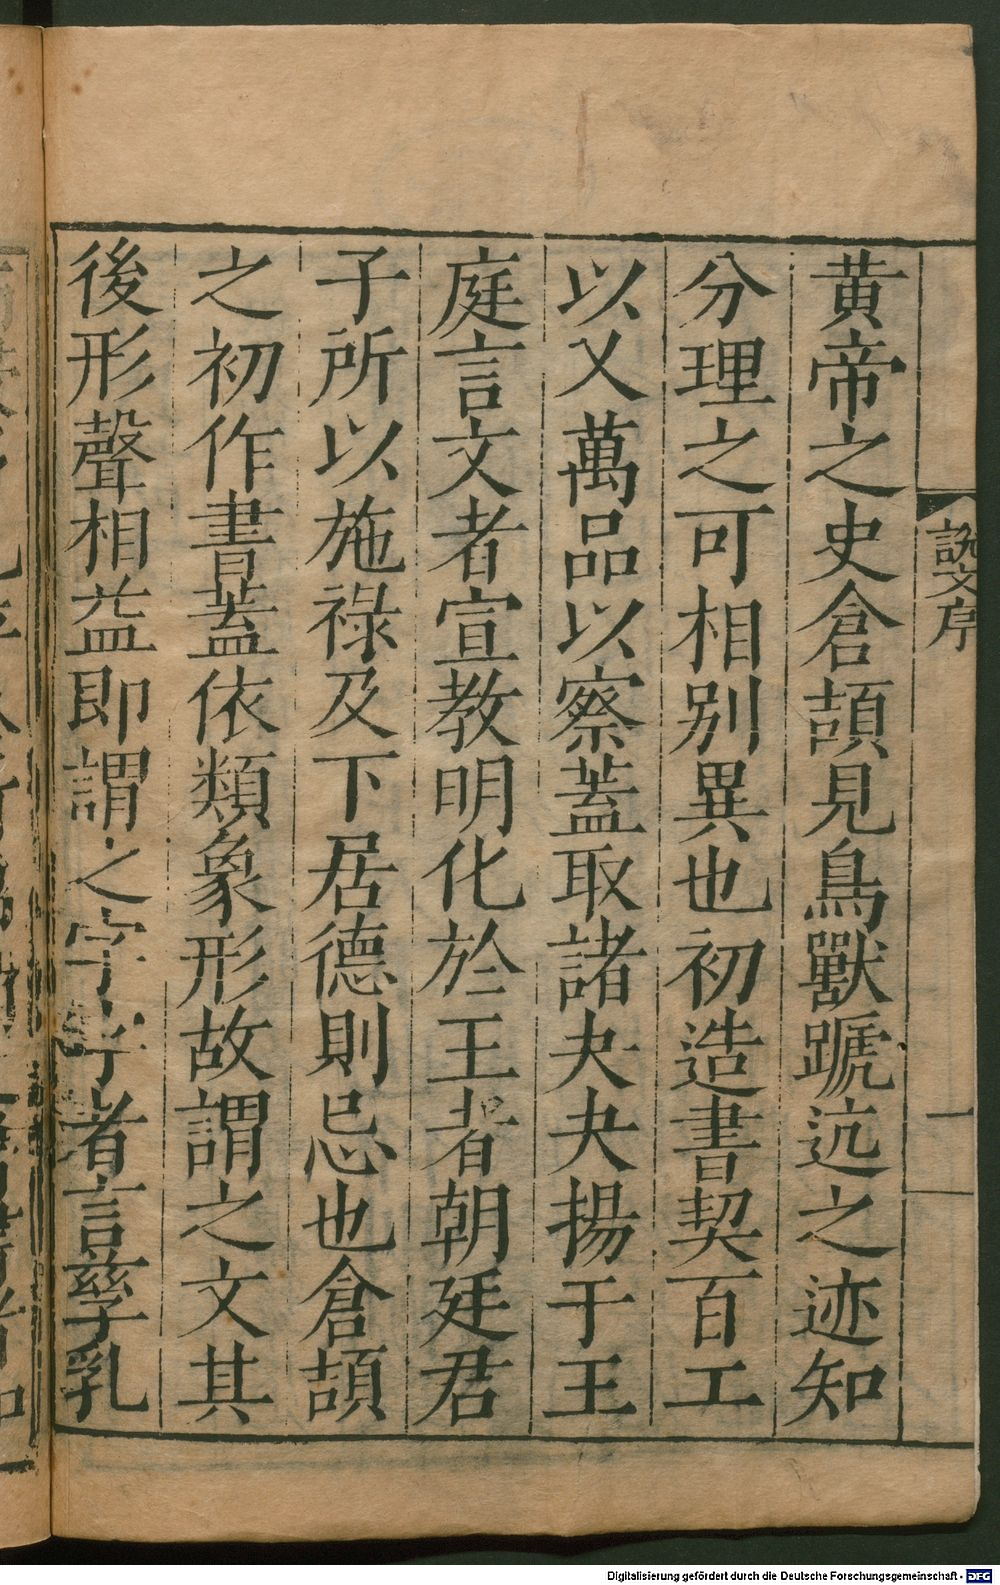 說文序
一
黄帝之史倉頡見鳥獸蹏迒之迹知
分理之可相別異也初造書契百工
以乂萬品以察蓋取諸夬夬揚于王
庭言文者宣教明化於王者朝廷君
子所以施祿及下居德則忌也倉頡
之初作書蓋依類象形故謂之文其
後形聲相益即謂之字字者言孳乳
Digitalisierung gefördert durch die Deutsche Forschungsgemeinschaft - DFG